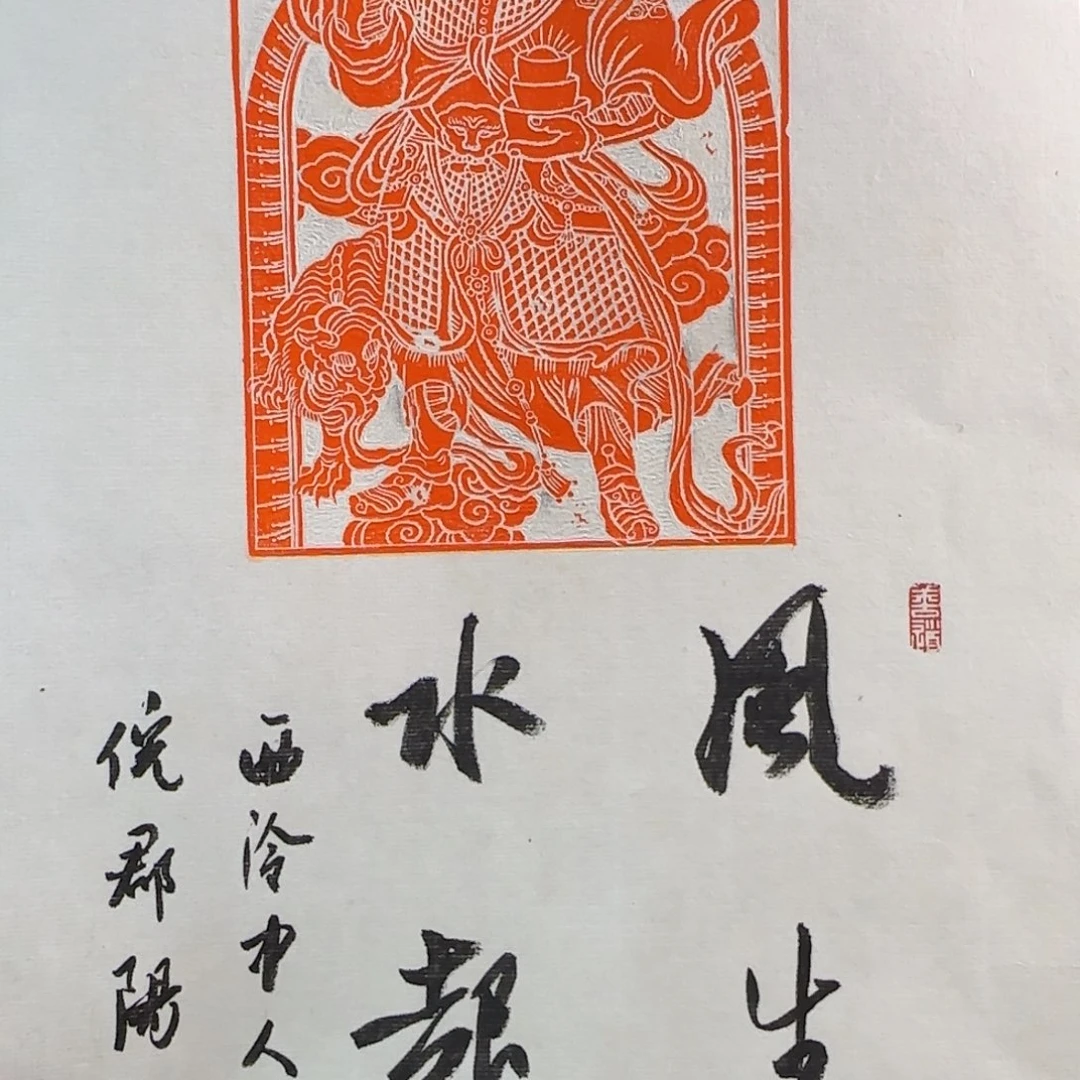 風生
水起
西泠中人
倪郡陽